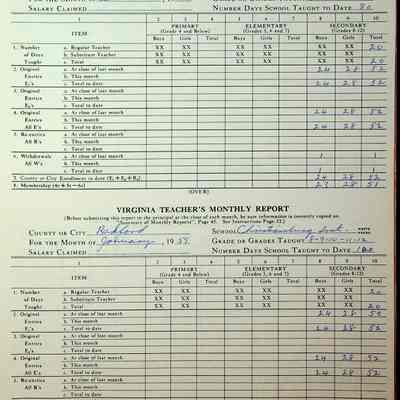 SALARY CLAIMED NUMBER DAYS SCHOOL TAUGHT TO DATE 80
1 2 3 4 5 6 7 8 9 10
ITEM PRIMARY (Grade 4 and Below) ELEMENTARY (Grades 5, 6 and 7) SECONDARY (Grades 8-12)
Boys Girls Total Boys Girls Total Boys Girls Total
1. Number a. Regular Teacher XX XX XX XX XX XX 20
of Days b. Substitute Teacher XX XX XX XX XX XX
Taught c. Total XX XX XX XX XX XX 20
2. Original a. At close of last month 24 28 52
Entries b. This month
E₁'s c. Total to date 24 28 52
3. Original a. At close of last month
Entries b. This month
E₂'s c. Total to date
4. Original a. At close of last month 24 28 52
Entries b. This month
All E's c. Total to date 24 28 52
5. Re-entries a. At close of last month
All R's b. This month
c. Total to date
6. Withdrawals a. At close of last month 1 1
All W's b. This month
c. Total to date 1 1
7. County or City Enrollment to date (E₁+E₂+R₂) 24 28 52
8. Membership (4c+5c-6c) 23 28 51
(OVER)
VIRGINIA TEACHER'S MONTHLY REPORT
(Before submitting this report to the principal at the close of each month, be sure information is correctly copied on
"Summary of Monthly Reports", Page 45. See Instructions Page 32.)
COUNTY OR CITY Radford SCHOOL Christiansburg Inst.
FOR THE MONTH OF January, 19 GRADE OR GRADES TAUGHT 8-9-10-11-12
SALARY CLAIMED NUMBER DAYS SCHOOL TAUGHT TO DATE 100
1 2 3 4 5 6 7 8 9 10
ITEM PRIMARY (Grade 4 and Below) ELEMENTARY (Grades 5, 6 and 7) SECONDARY (Grades 8-12)
Boys Girls Total Boys Girls Total Boys Girls Total
1. Number a. Regular Teacher XX XX XX XX XX XX 20
of Days b. Substitute Teacher XX XX XX XX XX XX
Taught c. Total XX XX XX XX XX XX 20
2. Original a. At close of last month 24 28 52
Entries b. This month
E₁'s c. Total to date 24 28 52
3. Original a. At close of last month
Entries b. This month
E₂'s c. Total to date
4. Original a. At close of last month 24 28 52
Entries b. This month
All E's c. Total to date 24 28 52
5. Re-entries a. At close of last month
All R's b. This month